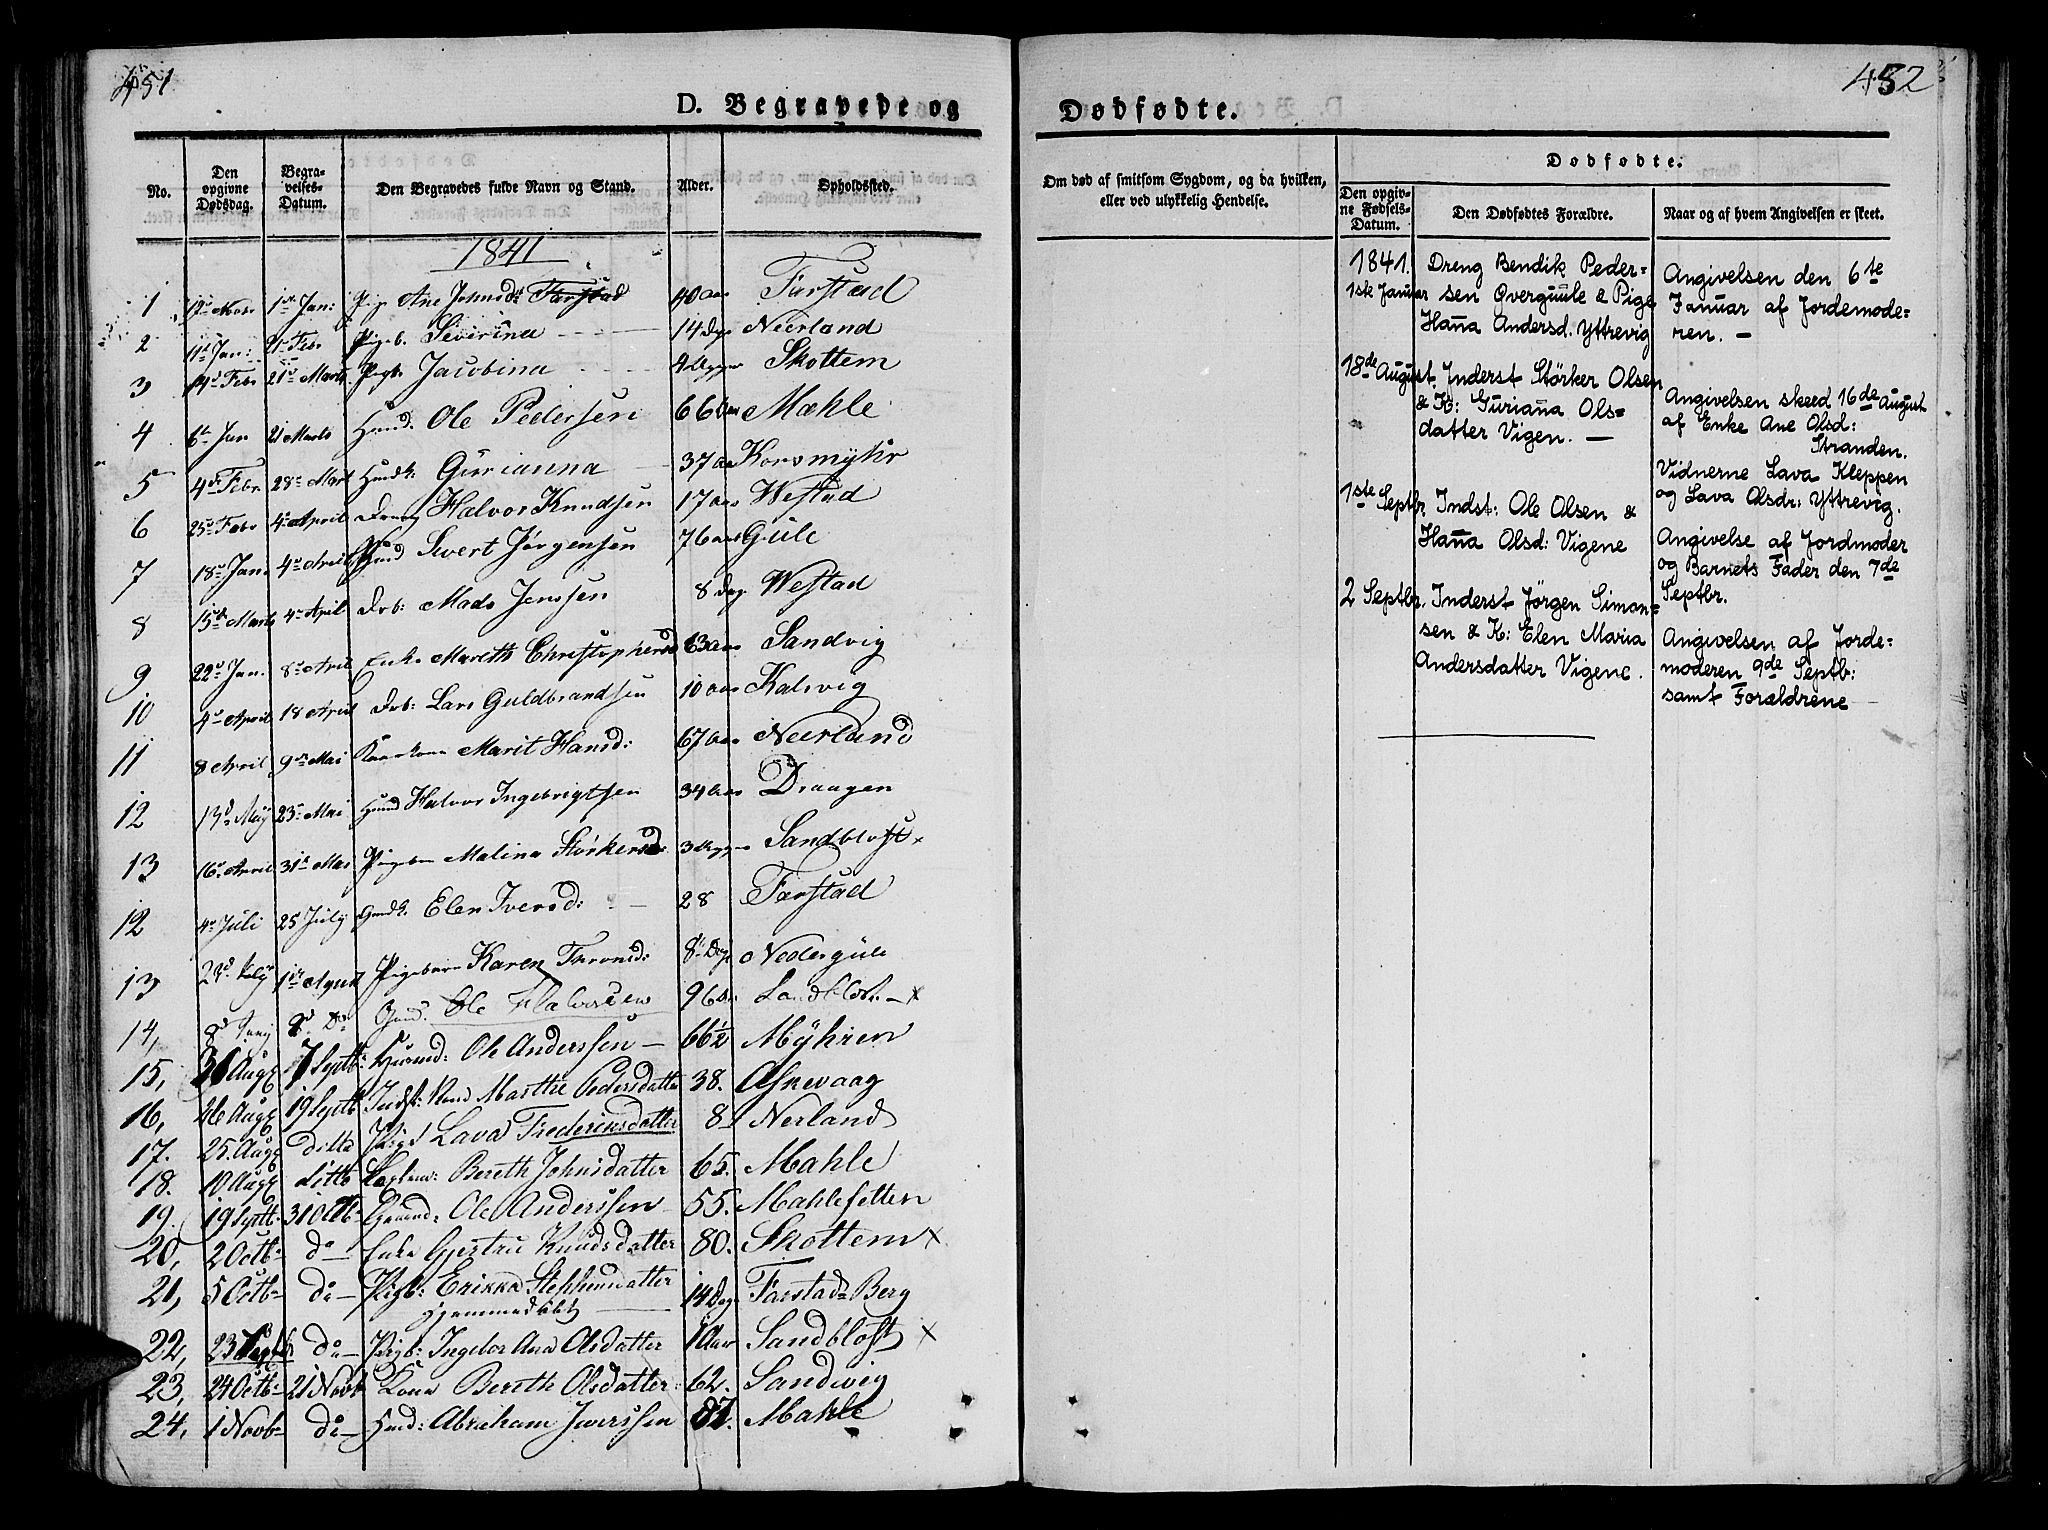 451
D. Begravede og
No. Den opgivne Dødsdag. Begravelses-Datum. Den Begravedes fulde Navn og Stand. Alder. Opholdssted.
1841
1 1ste Jan: Pige Ane Johnsd: Farstad 40 Aar Farstad
2 11te Jan: Febr Pigeb. Severina 14 Dage Neerland
3 14de Febr 21de Marts Pigeb. Jacobina 4 Skottem
4 6te Jan 21 Marts Huusd. Ole Pedersen 66 Aar Mæhle
5 4de Febr 28de Mart Huusk. Gurianna 37 Aar Korsmyhr
6 25de Febr 4de April Dreng Halvor Knudsen 17 Aar Westad
7 18de Jan. 4de April Huusd Sivert Jørgensen 76 Aar Gule
8 15de Marts 4de April Drb: Mads Jenssen 8 Dage Westad
9 22de Jan. 8de April Enke Mareth Christophersd 63 Aar Sandvig
10 4de April 18 April Drb: Lars Guldbrandsen 10 Aar Kalsvig
11 8 April 9de Mai Marit Hansd: 67 Aar Neerland
12 13de May 23de Mai Huusd Halvor Ingebrigtsen 34 Aar Draagen
13 16de April 31te Mai Pigebarn Malina Størkersd: 3 Sandbløst x
12 4de Juli 25 July Gmdk. Elen Iversd: 28 Farstad
13 July 1ste August Pigebarn Karen Thronsd: 8 Dage Nedergule
14, 8de Juny 8de Do Gmd. Ole Halvorsen 96 Aar Sandbløst x
15, 31 Aug 7 Septb: Huusmd: Ole Anderssen 66½ Myhren
16, 26 Aug 19 Septb Indst: Kone Marthe Pedersdatter 38. Asnevaag
17. 25. Aug ditto Pige Lava Frederiksdatter 8 Nerland
18. 10 Aug ditto Bereth Johnsdatter 65. Mahle
19. 19 Septb: 31 Octb: Gaardmd: Ole Anderssen 55. Mahlesetten
20, 2 Octb- do Enke Gjertru Knudsdatter 80. Skottem x
21, 5 Octb- do Pigb: Erikka Stephensdatter 14 Dage Farstad Berg
hjemmedøbt
22, 23 Septb do Pigb: Ingebor Ana Olsdatter 1 Aar Sandbløst x
23, 24 Octb- 21 Novb Kone Bereth Olsdatter 62. Sandwig
24, 1 Novb- do Huusmd: Abraham Iverssen 87. Mahle
452
Dødfødte.
Om død af smitsom Sygdom, og da hvilken, eller ved ulykkelig Hendelse.
Dødfødte.
Den opgivne Fødsels-Datum. Den Dødfødtes Forældre. Naar og af hvem Angivelsen er skeet.
1841. Dreng Bendik Peder-
1ste Januar sen Overguule & Pige
Hana Andersd. Yttrevig
Angivelsen den 6te
Januar af Jordemode-
ren. —
18de August. Inderst Størker Olsen
& K: Guriana Ols-
datter Vigen. —
Angivelsen skeed 16de August
af Enke Ane Olsd:
Stranden.
Vidnerne Lava Kleppen
og Lava Olsdr: Yttrevig.
1ste Septbr. Indst: Ole Olsen &
Hana Olsd: Vigene
Angivelse af Jordmoder
og Barnets Fader den 7de
Septbr.
2 Septbr. Inderst Jørgen Simon-
sen & K: Elen Maria
Andersdatter Vigene.
Angivelsen af Jorde-
moderen 9de Septb:
samt Forældrene